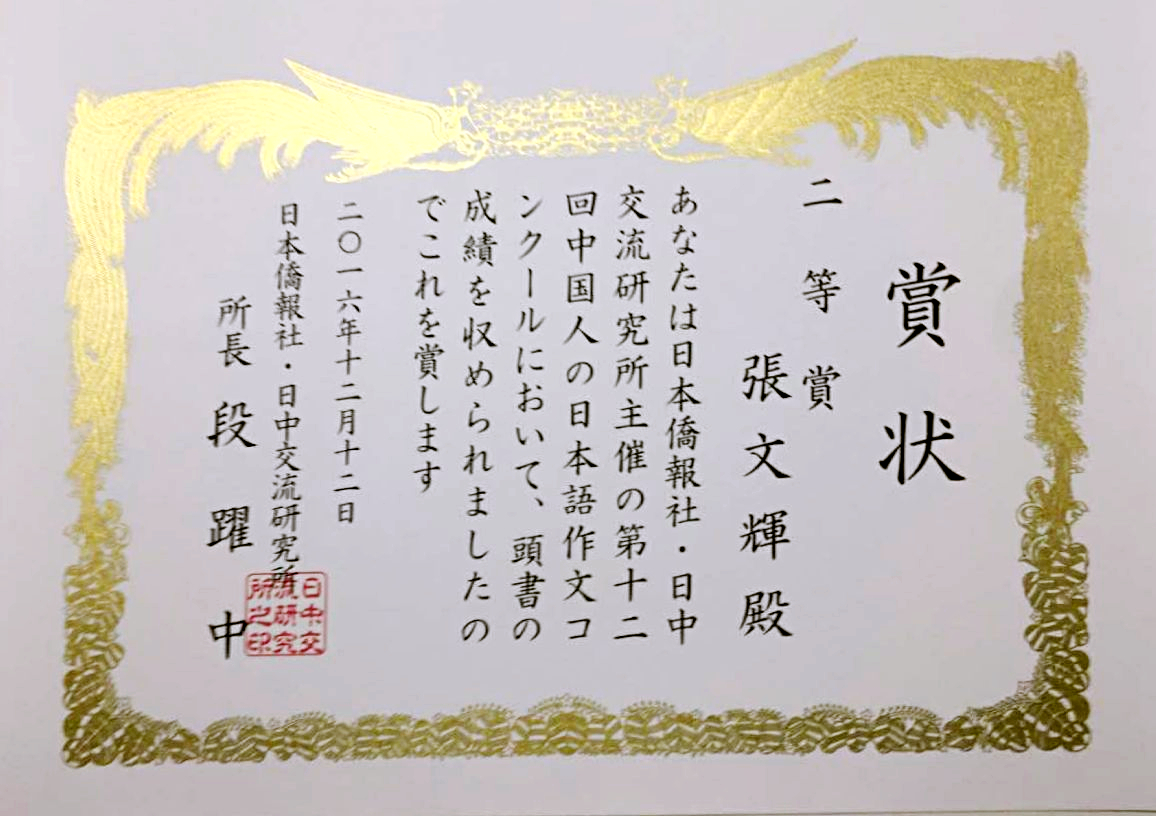 賞状
二等賞
張文輝殿
あなたは日本僑報社・日中
交流研究所主催の第十二
回中国人の日本語作文コ
ンクールにおいて、頭書の
成績を収められましたの
でこれを賞します
二〇一六年十二月十二日
日本僑報社・日中交流研究所
所長 段躍中
日中交
流研究
所之印